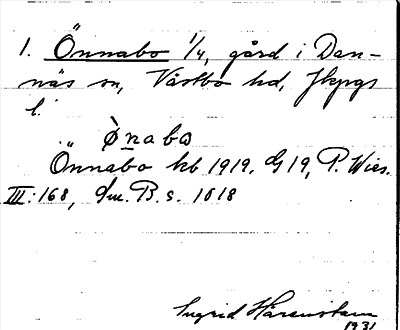 1. Önnabo 1/4, gård i Dan-
näs sn, Västbo hd, Jkpgs
l.
Ønabo
Önnabo kb 1919. G 19, P. Wies.
III: 168, Gm. B. s. 1018
Ingrid Hårenstam
1931